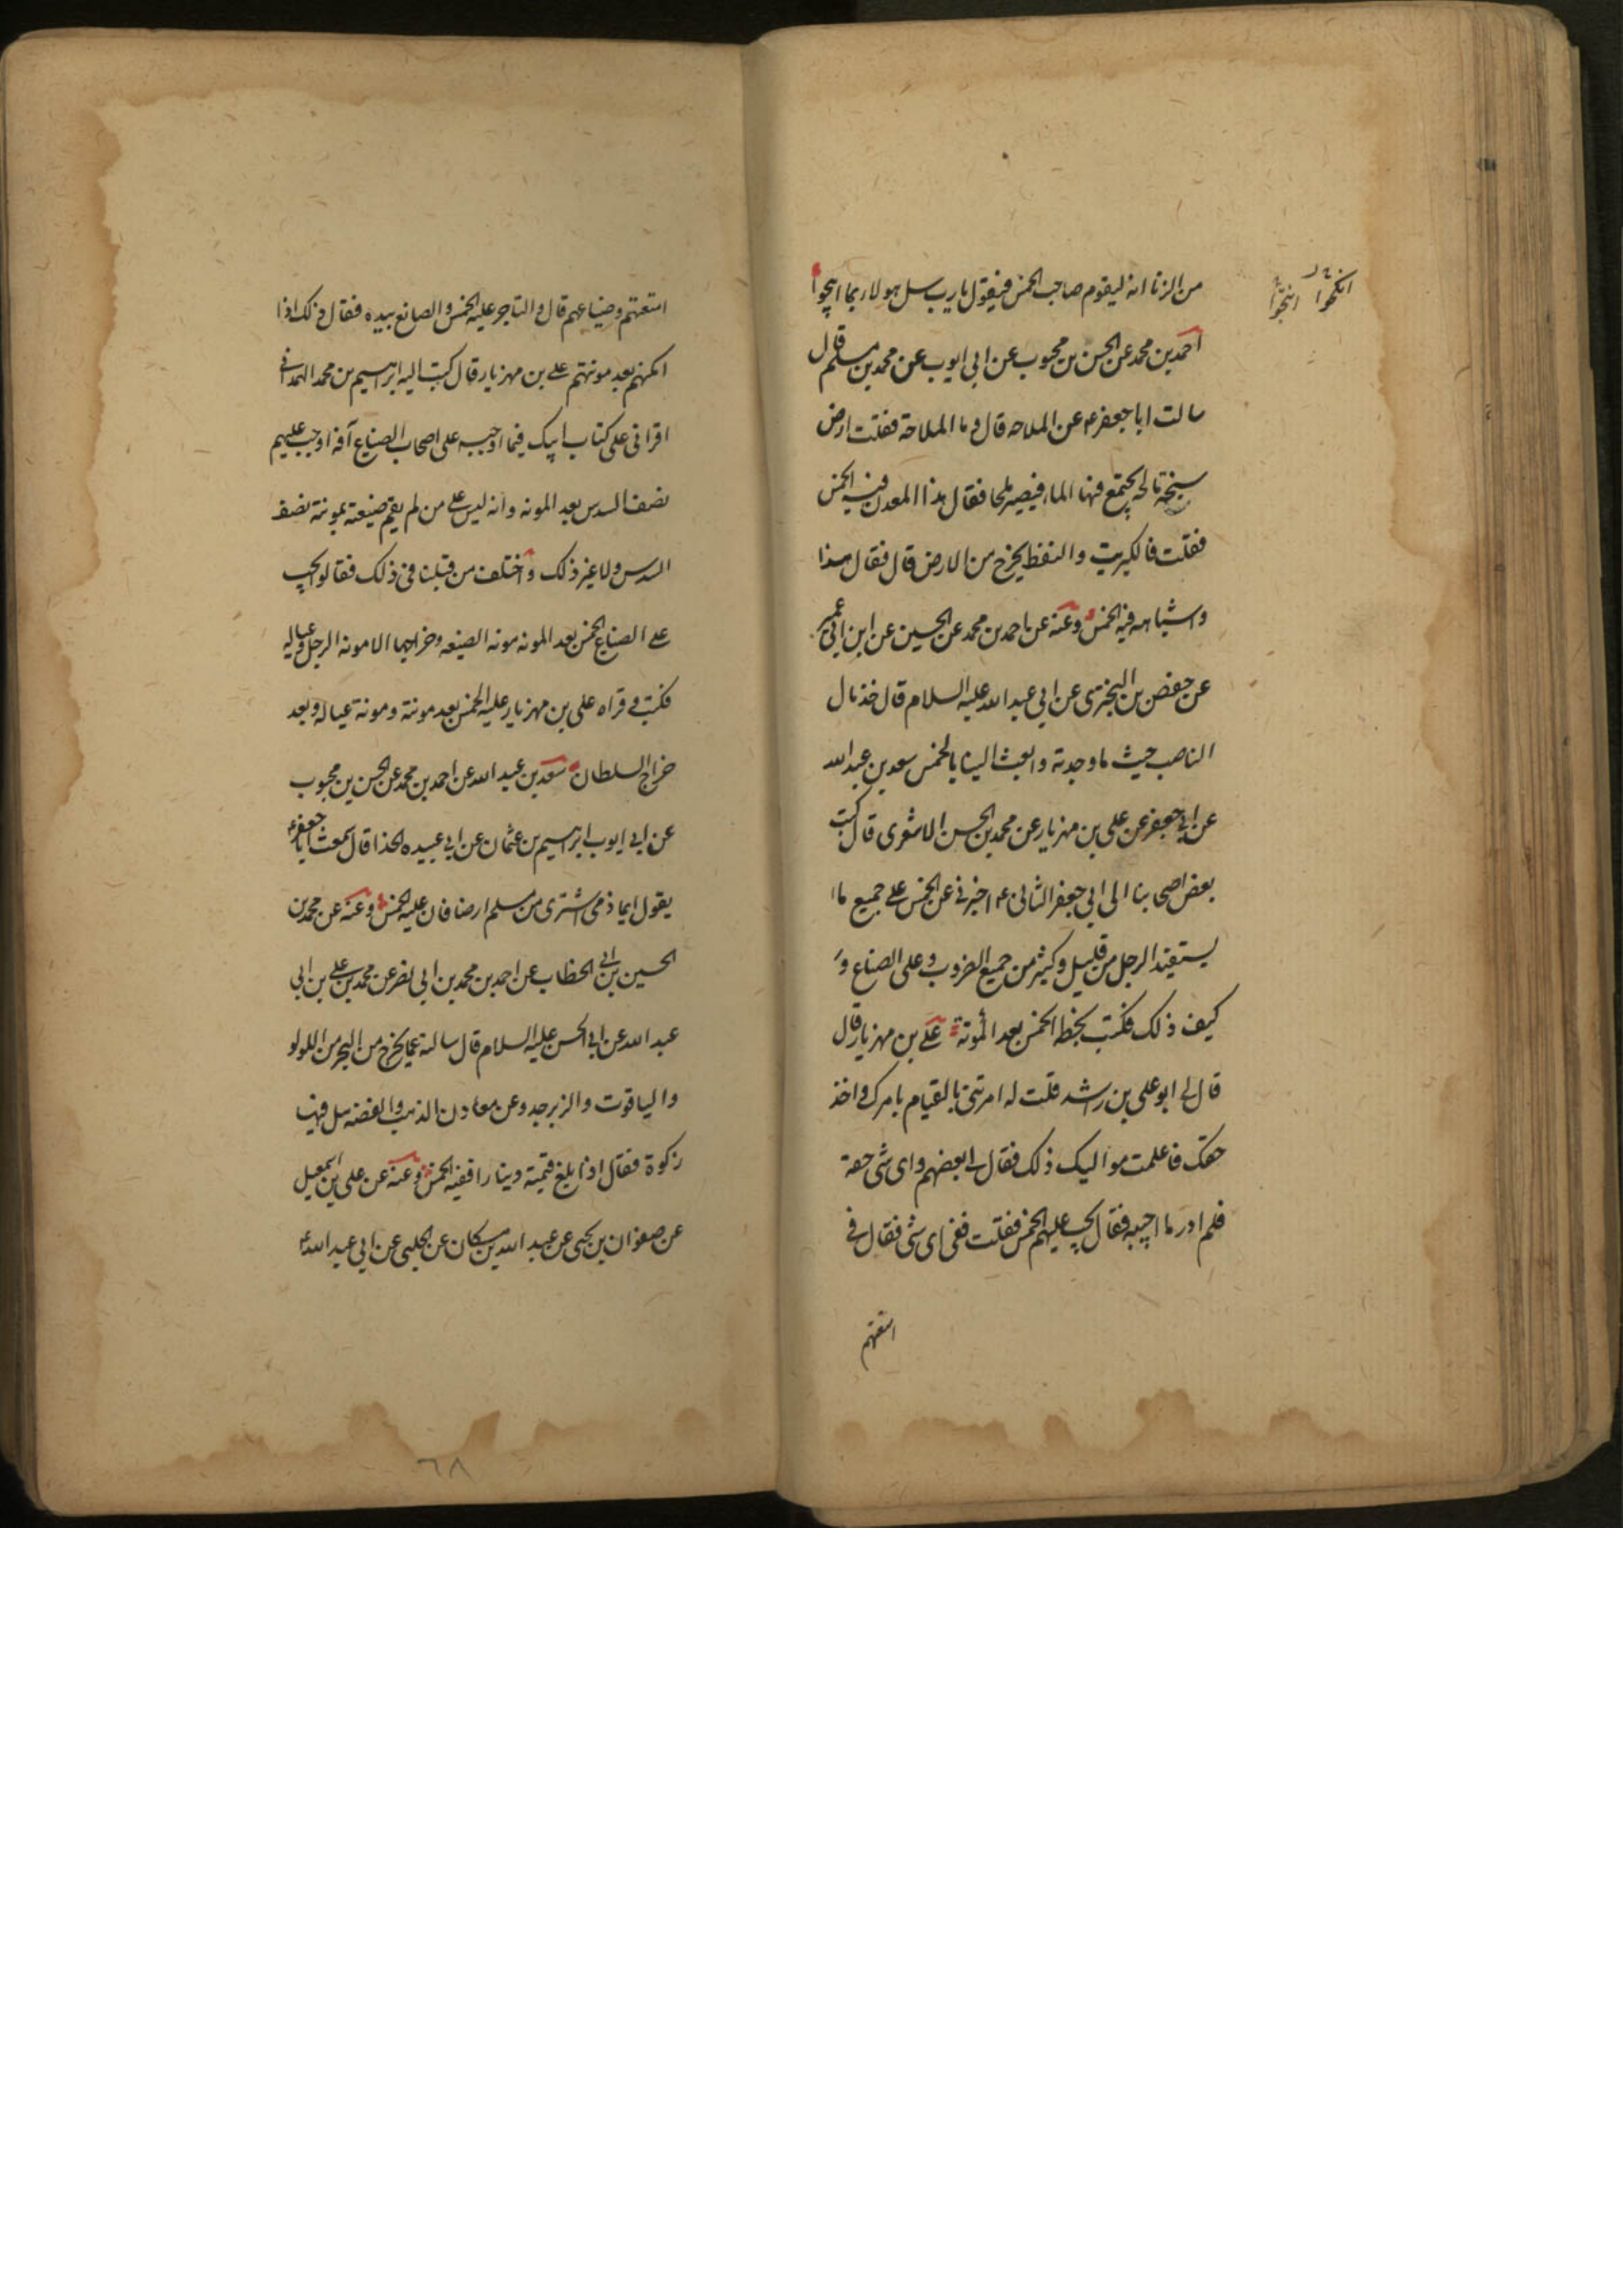 انكحوا انتجوا
من الزنا انه ليقوم صاحب الخمس فيقول يا رب سل هولاء بما ابيحوا
احمد بن محمد عن الحسن بن محبوب عن ابى ايوب عن محمد بن مسلم قال
سالت ابا جعفر ع عن الملاحه قال وما الملاحة فقلت ارض
سبخة مالحه يجتمع فيها الماء فيصير ملحا فقال هذا المعدن فيه الخمس
فقلت فالكبريت والنفط يخرج من الارض قال فقال هذا
واشباهه فيه الخمس وعنه عن احمد بن محمد عن الحسين عن ابن ابى عمير
عن حفص بن البخترى عن ابى عبد الله عليه السلام قال خذ مال
الناصب حيث ما وجدته وابعث الينا بالخمس سعد بن عبد الله
عن ابى جعفر عن على بن مهزيار عن محمد بن الحسن الاشعرى قال كتب
بعض اصحابنا الى ابى جعفر الثانى ع اخبرنى عن الخمس على جميع ما
يستفيد الرجل من قليل وكثير من جميع الضروب وعلى الصناع و
كيف ذلك فكتب بخطه الخمس بعد المؤنة على بن مهزيار قال
قال لى ابو على بن راشد قلت له امرتنى بالقيام بامرك واخذ
حقك فاعلمت مواليك ذلك فقال لى بعضهم واى شى حقه
فلم ادر ما اجيبه فقال يجب عليهم الخمس فقلت ففى اى شى فقال فى
امتعتهم
امتعتهم وضياعهم قال والتاجر عليه الخمس والصانع بيده فقال ذلك اذا
امكنهم بعد مونتهم على بن مهزيار قال كتب اليه ابراهيم بن محمد الهمدانى
اقرانى على كتاب ابيك فيما اوجبه على اصحاب الضياع انه اوجب عليهم
نصف السدس بعد المونه وانه ليس على من لم يقم ضيعته بمونته نصف
السدس ولا غير ذلك واختلف من قبلنا فى ذلك فقالوا يجب
على الضياع الخمس بعد المونه مونه الضيعه وخراجها لا مونه الرجل وعياله
فكتب وقراه على بن مهزيار عليه الخمس بعد مونته ومونة عياله وبعد
خراج السلطان سعد بن عبد الله عن احمد بن محمد عن الحسن بن محبوب
عن ابى ايوب ابراهيم بن عثمان عن ابى عبيده الحذا قال سمعت ابا جعفر ع
يقول ايما ذمى اشترى من مسلم ارضا فان عليه الخمس وعنه عن محمد بن
الحسين بن ابى الخطاب عن احمد بن محمد بن ابى نصر عن محمد بن على بن ابى
عبد الله عن ابى الحسن عليه السلام قال سالته عما يخرج من البحر من اللولو
والياقوت والزبرجد وعن معادن الذهب والفضه هل فيها
زكوة فقال اذا بلغ قيمته دينارا ففيه الخمس وعنه عن على بن اسمعيل
عن صفوان بن يحيى عن عبد الله بن مسكان عن الحلبى عن ابى عبد الله ع
٦٨